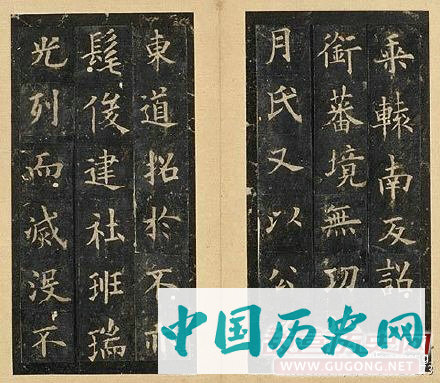 乘轅南反詔
銜蕃境無
月氏又以公
東道招於不
髦俊建社班瑞
光列而滅沒不
中国历史网
WWW.GUGONG.NET